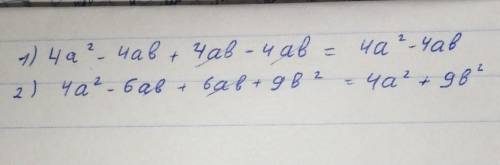 1) 4a² - 4ab + 4ab - 4ab = 4a² - 4ab
2) 4a² - 6ab + 6ab + 9b² = 4a² + 9b²